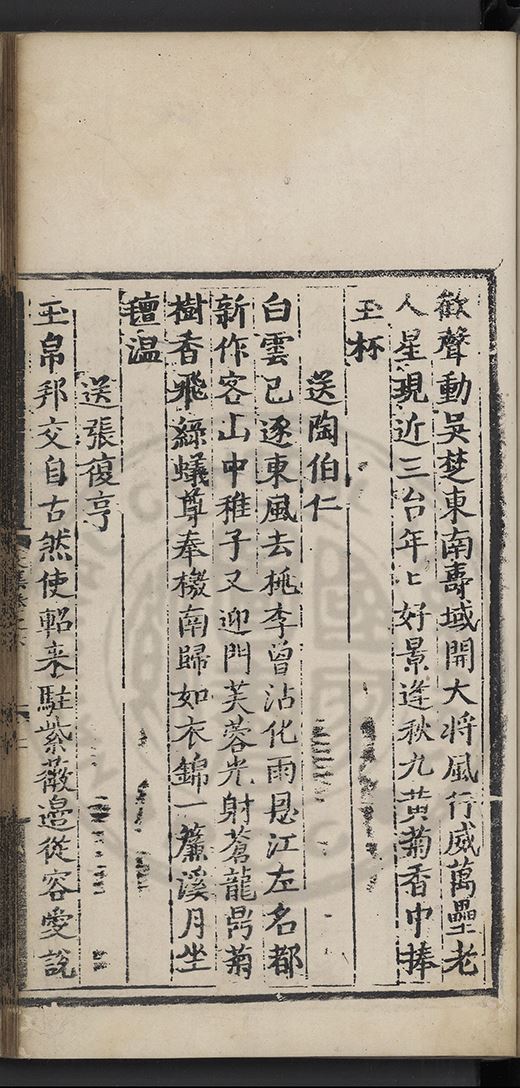 歡聲動吳楚東南壽域開大将風行威萬壘老
人星現近三台年〻好景逢秋九黄菊香中捧
玉杯
送陶伯仁
白雲已逐東風去桃李曾沾化雨恩江左名都
新作客山中稚子又迎門芙蓉光射蒼龍昺菊
樹香飛綠蟻尊奉檄南歸如衣錦一簾溪月坐
氊温
送張復亨
玉帛邦交自古然使軺来駐紫薇邉從容愛說